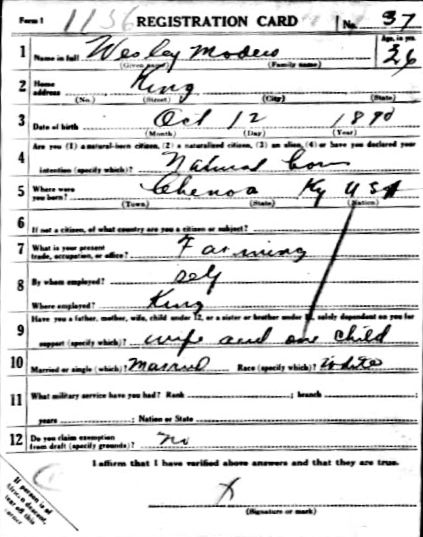 Form 1 1136 REGISTRATION CARD No. 37
1 Name in full Wesley Age, in yrs. 26
(Given name) (Family name)
2 Home address King
(No.) (Street) (City) (State)
3 Date of birth Oct 12
(Month) (Day) (Year)
Are you (1) a natural-born citizen, (2) a naturalized citizen, (3) an alien, (4) or have you declared your
4 intention (specify which)? Natural Born
5 Where were you born? Chenoa Ky USA
(Town) (State) (Nation)
6 If not a citizen, of what country are you a citizen or subject?
7 What is your present trade, occupation, or office? Farming
8 By whom employed? Self
Where employed? King
9 Have you a father, mother, wife, child under 12, or a sister or brother under 12, solely dependent on you for
support (specify which)? wife and one child
10 Married or single (which)? Married Race (specify which)? White
11 What military service have you had? Rank ; branch ;
years ; Nation or State
12 Do you claim exemption from draft (specify grounds)? No
I affirm that I have verified above answers and that they are true.
X
(Signature or mark)
If person is of
descent,
tear off this
corner